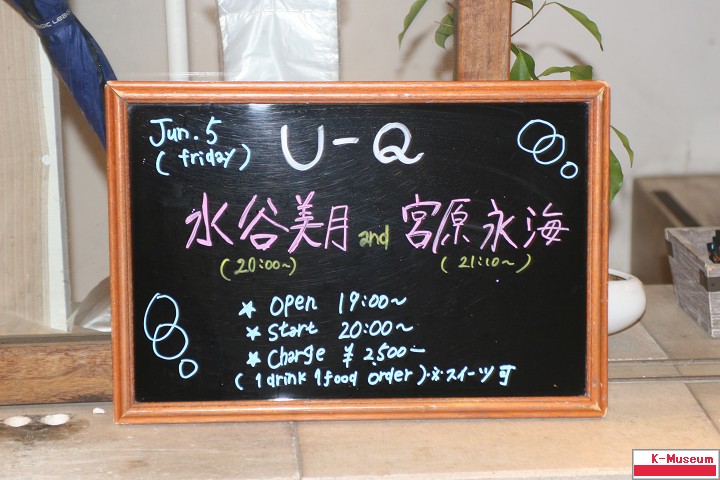 Jun. 5
(friday)
U-Q
水谷美月 and 宮原永海
(20:00~)
(21:10~)
★ open 19:00~
★ Start 20:00~
★ Charge ¥2,500-
(1drink 1food order)※スイーツ可
K-Museum